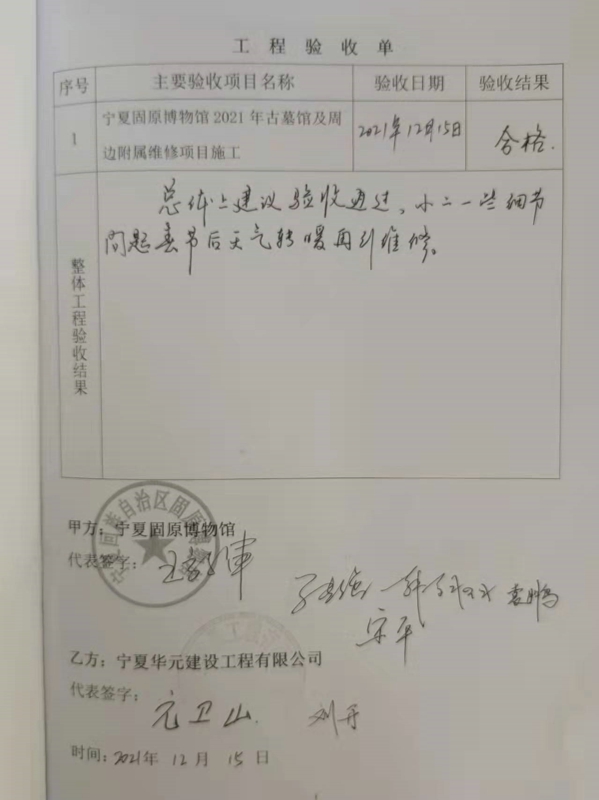 工程验收单
序号 主要验收项目名称 验收日期 验收结果
1 宁夏固原博物馆2021年古墓馆及周边附属维修项目施工 2021年12月15日 合格.
整体工程验收结果
总体上建议验收通过、一些细节
问题春节后天气转暖再维修。
甲方：宁夏固原博物馆
代表签字：
宋平
乙方：宁夏华元建设工程有限公司
代表签字：
元卫山. 刘丹
时间：2021年12月15日